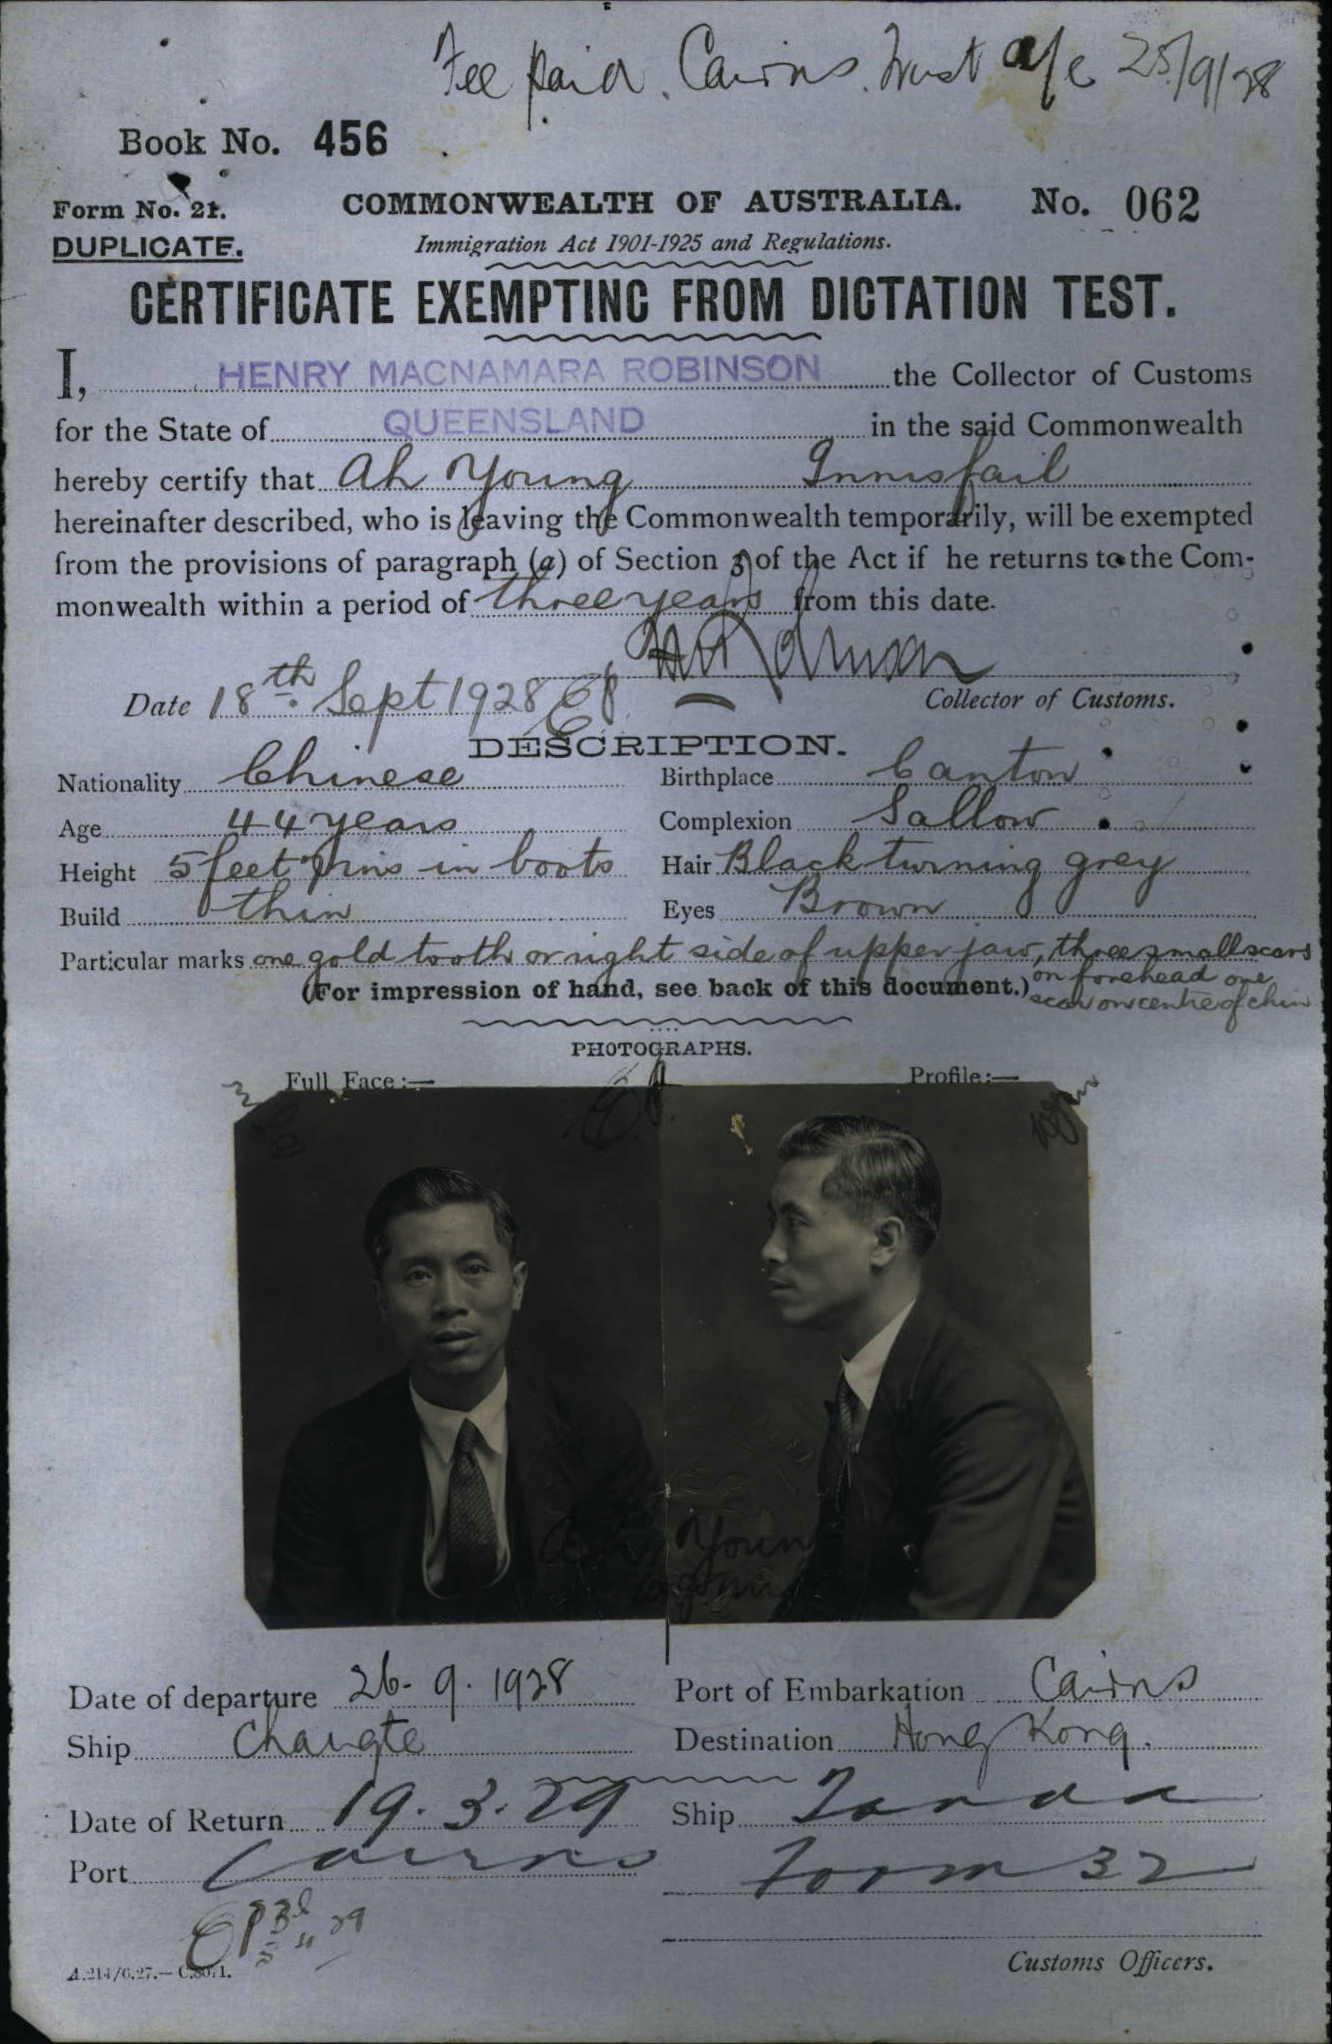 Fee paid. Cairns. Trust a/c 25/9/28
Book No. 456
Form No. 21.
COMMONWEALTH OF AUSTRALIA. No. 062
DUPLICATE.
Immigration Act 1901-1925 and Regulations.
CERTIFICATE EXEMPTING FROM DICTATION TEST.
I, HENRY MACNAMARA ROBINSON the Collector of Customs
for the State of QUEENSLAND in the said Commonwealth
hereby certify that Ah Young Innisfail
hereinafter described, who is leaving the Commonwealth temporarily, will be exempted
from the provisions of paragraph (a) of Section 3 of the Act if he returns to the Com-
monwealth within a period of three years from this date.
Date 18th. Sept 1928
Collector of Customs.
DESCRIPTION.
Nationality Chinese Birthplace Canton
Age 44 years Complexion Sallow
Height 5 feet ins in boots Hair Black turning grey
Build thin Eyes Brown
Particular marks one gold tooth on right side of upper jaw, three small scars
on forehead one
scar on centre of chin
(For impression of hand, see back of this document.)
PHOTOGRAPHS.
Full Face:— Profile:—
Ah Young
Date of departure 26-9.1928 Port of Embarkation Cairns
Ship Changte Destination Hong Kong.
Date of Return 19.3.29 Ship Tanda
Port Cairns Form 32
A.214/6.27.—C.8071.
Customs Officers.